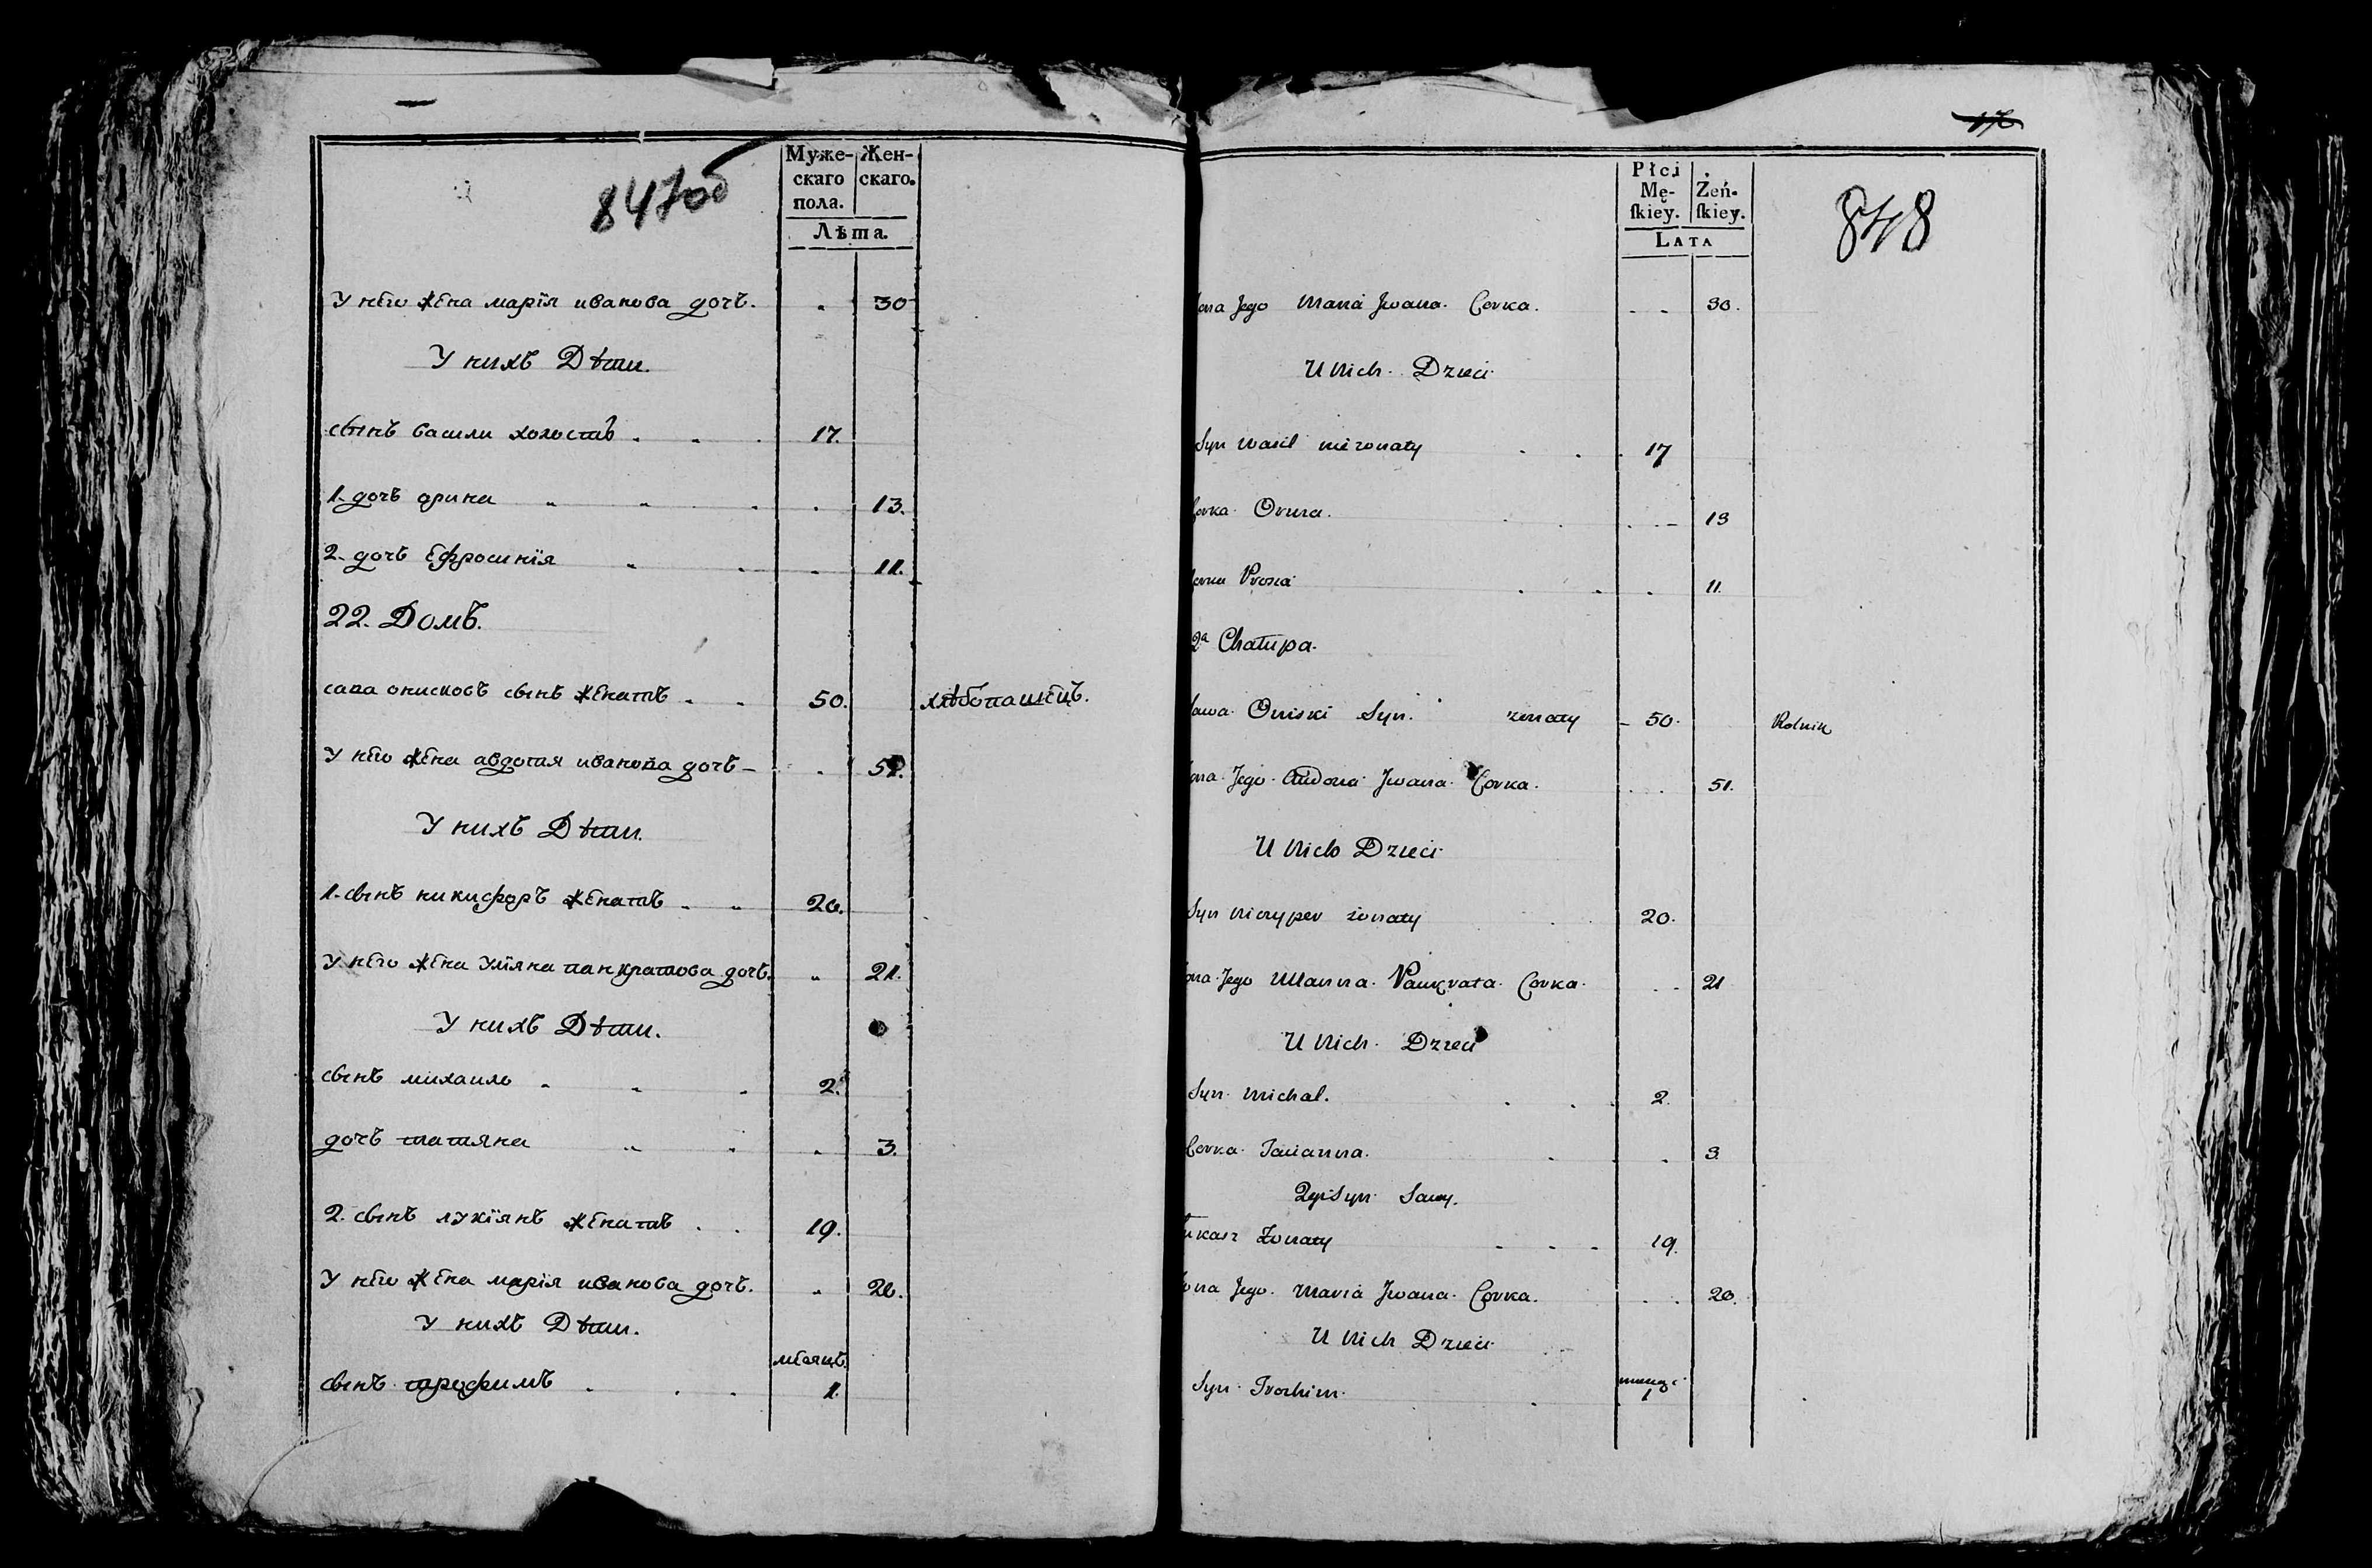 847об
Муже- Жен-
скаго скаго.
пола.
Лѣта.
У него жена марїя иванова дочъ. 30
У нихъ Дѣти.
сынъ васили холостъ 17.
1. дочъ орина 13.
2. дочъ Ефросинїя 11.
22. Домъ.
сава онисковъ сынъ женатъ 50. хлѣбопашецъ.
У него жена авдотая иванова дочъ 51.
У нихъ Дѣти.
1. сынъ никифоръ женатъ 20.
У него жена Улїяна панкратова дочъ. 21.
У нихъ Дѣти.
сынъ михаилъ 2.
дочъ татяна 3.
2. сынъ лукїянъ женатъ 19.
У него жена марїя иванова дочъ. 20.
У нихъ Дѣти.
месяцъ.
сынъ трофимъ 1.
848
Płci Żeń-
Mę- ſkiey.
ſkiey.
LATA
ona Jego Maria Jwana Corka. 30.
U Nich Dzieci
Syn Wasil nieżonaty 17
Corka Oryna. 13
Corka Prosia 11.
2a Chałupa.
Sawa Oniski Syn. żonaty 50. Rolnik
ona Jego Audocia Jwana Corka. 51.
U Nich Dzieci
Syn Niczyper żonaty 20.
ona Jego Ulianna Pankrata Corka. 21
U Nich Dzieci
Syn Michal. 2.
Corka Tacianna. 3
2gi Syn Sawy.
Łukasz Żonaty 19.
ona Jego Maria Jwana Corka. 20.
U Nich Dzieci
Syn Trochim. 1